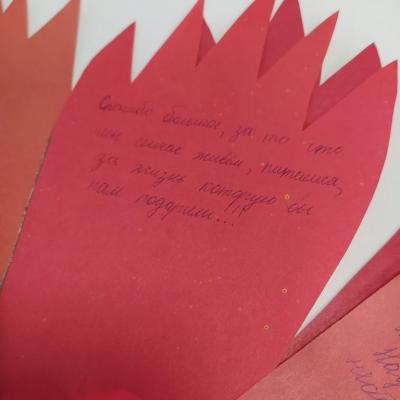 Спасибо большое, за то что
мы сейчас живём, питаемся,
за жизнь которую вы
нам подарили...!!!